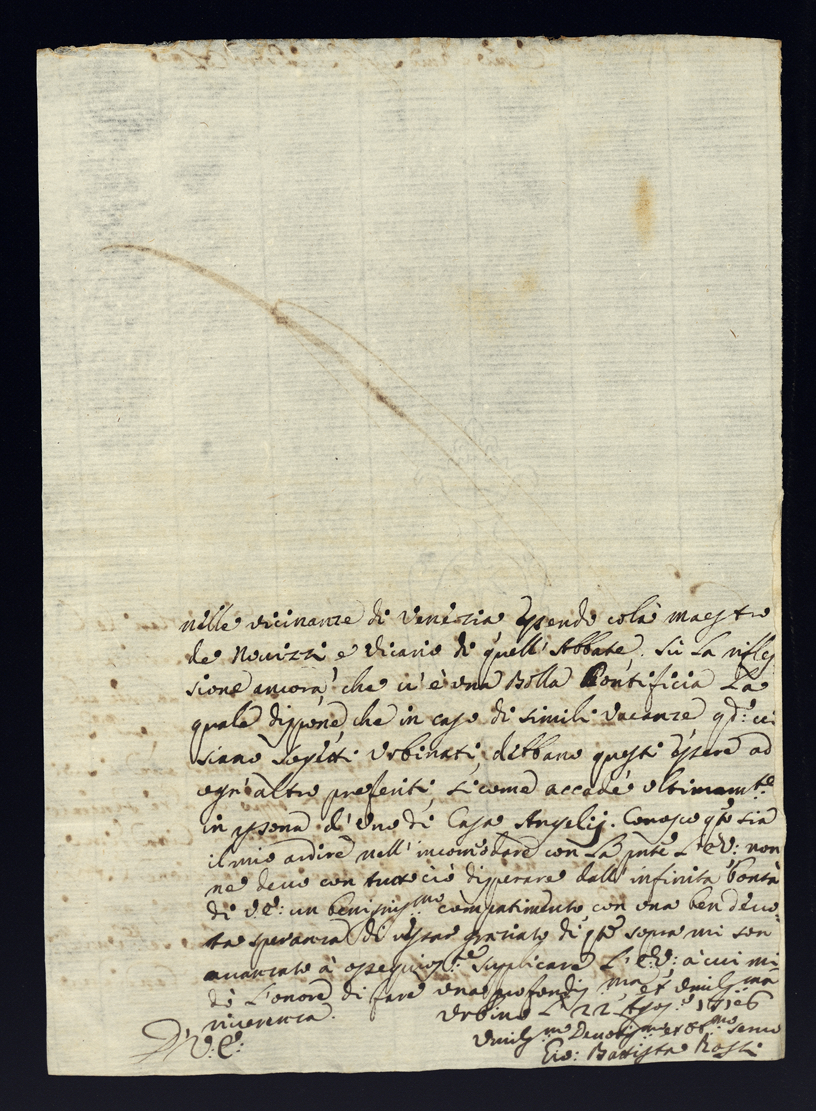 nelle vicinanze di Venezia essendo colà maestro
de Novizzi e Vicario di quell' Abbate. Sù la rifles
sione ancora che vi è una Bolla Pontificia La
quale dispone che in caso di simili vacanze qdo: vi
siano sogetti Urbinati, debbano questi essere ad
ogn' altro preferiti, si come accade ultimamte
in psona d' uno di Casa Angelij. Conosco qto sia
il mio ardire nell' incomodare con la pnte L' E.V: non
ne devo con tutto ciò disperare dall' infinita bontà
di V.E: un benignissmo compatimento con una ben devo
ta speranza di restar graziato di qto sopra mi son
avanzato à supplicare L' E.V: à cui mi
dò L' onore di fare una profondissma et umilissma
riverenza. Urbino Li 22 Agosto 1716
D' V: E: Umilissmo Devotissmo et Obbmo servo
Gio: Battista Rossi